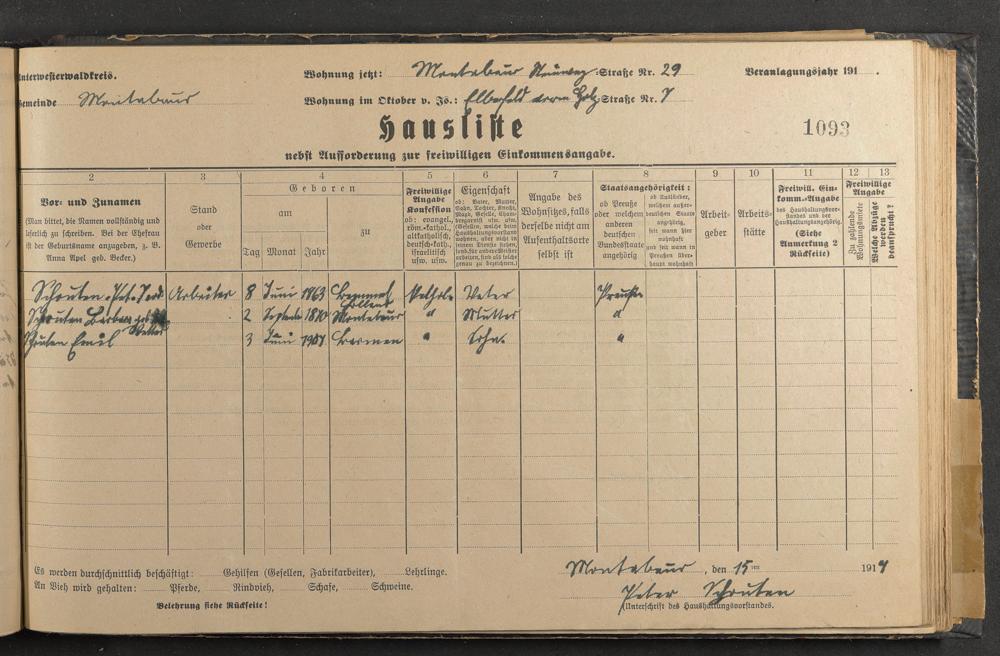 Unterwesterwaldkreis. Wohnung jetzt: Montabaur Steinweg Straße Nr. 29 Veranlagungsjahr 191 .
Gemeinde Montabaur Wohnung im Oktober v. Js.: Elberfeld Straße Nr. 7
Hausliste
1093
nebst Aufforderung zur freiwilligen Einkommensangabe.
2 3 4 5 6 7 8 9 10 11 12 13
Vor- und Zunamen
(Man bittet, die Namen vollständig und
leserlich zu schreiben. Bei der Ehefrau
ist der Geburtsname anzugeben, z. B.
Anna Apel geb. Becker.)
Stand
oder
Gewerbe
Geboren
am
zu
Tag Monat Jahr
Freiwillige
Angabe
Konfession
ob: evangel.,
röm.-kath.,
altkatholisch,
deutsch-kath.,
israelitisch
usw. usw.
Eigenschaft
ob: Vater, Mutter,
Sohn, Tochter, Knecht,
Magd, Geselle,
Angabe des
Wohnsitzes, falls
derselbe nicht am
Aufenthaltsorte
selbst ist
Staatsangehörigkeit:
ob Preuße
oder welchem
anderen
deutschen
Bundesstaate
angehörig
ob Ausländer,
welchem außer-
deutschen Staate
angehörig,
seit wann hier
wohnhaft
und seit wann in
Preußen über-
haupt wohnhaft
Arbeit-
geber
Arbeits-
stätte
Freiwill. Ein-
komm.-Angabe
des Haushaltungsvor-
standes und der
Haushaltungsangehörig.
(Siehe
Anmerkung 2
Rückseite)
Freiwillige
Angabe
Zu zahlende
Wohnungsmiete
Welche Abzüge
werden
beansprucht?
Schouten Pet. Arbeiter 8 Juni 1863 Kathol. Vater Preuße
Schouten Barbara geb. 2 Septemb. Montabaur " Mutter "
Schouten Emil 3 Juni 1907 Barmen " Sohn "
Es werden durchschnittlich beschäftigt: Gehilfen (Gesellen, Fabrikarbeiter), Lehrlinge.
An Vieh wird gehalten: Pferde, Rindvieh, Schafe, Schweine.
Belehrung siehe Rückseite!
Montabaur, den 15ten 191
Peter Schouten
(Unterschrift des Haushaltungsvorstandes.